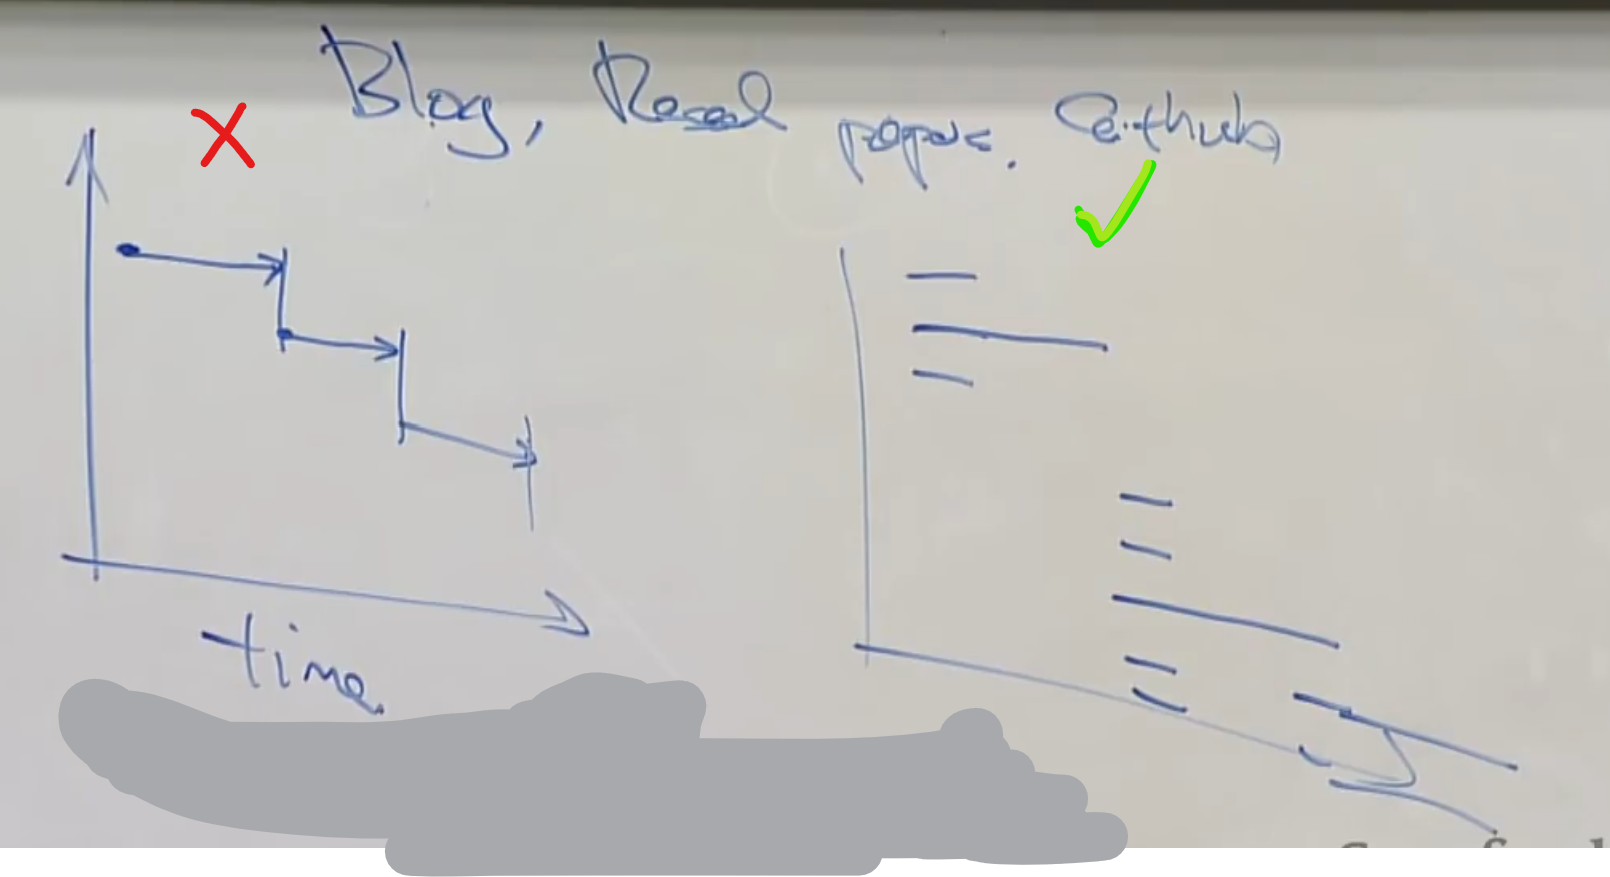 Blog, Read papers. Github
time